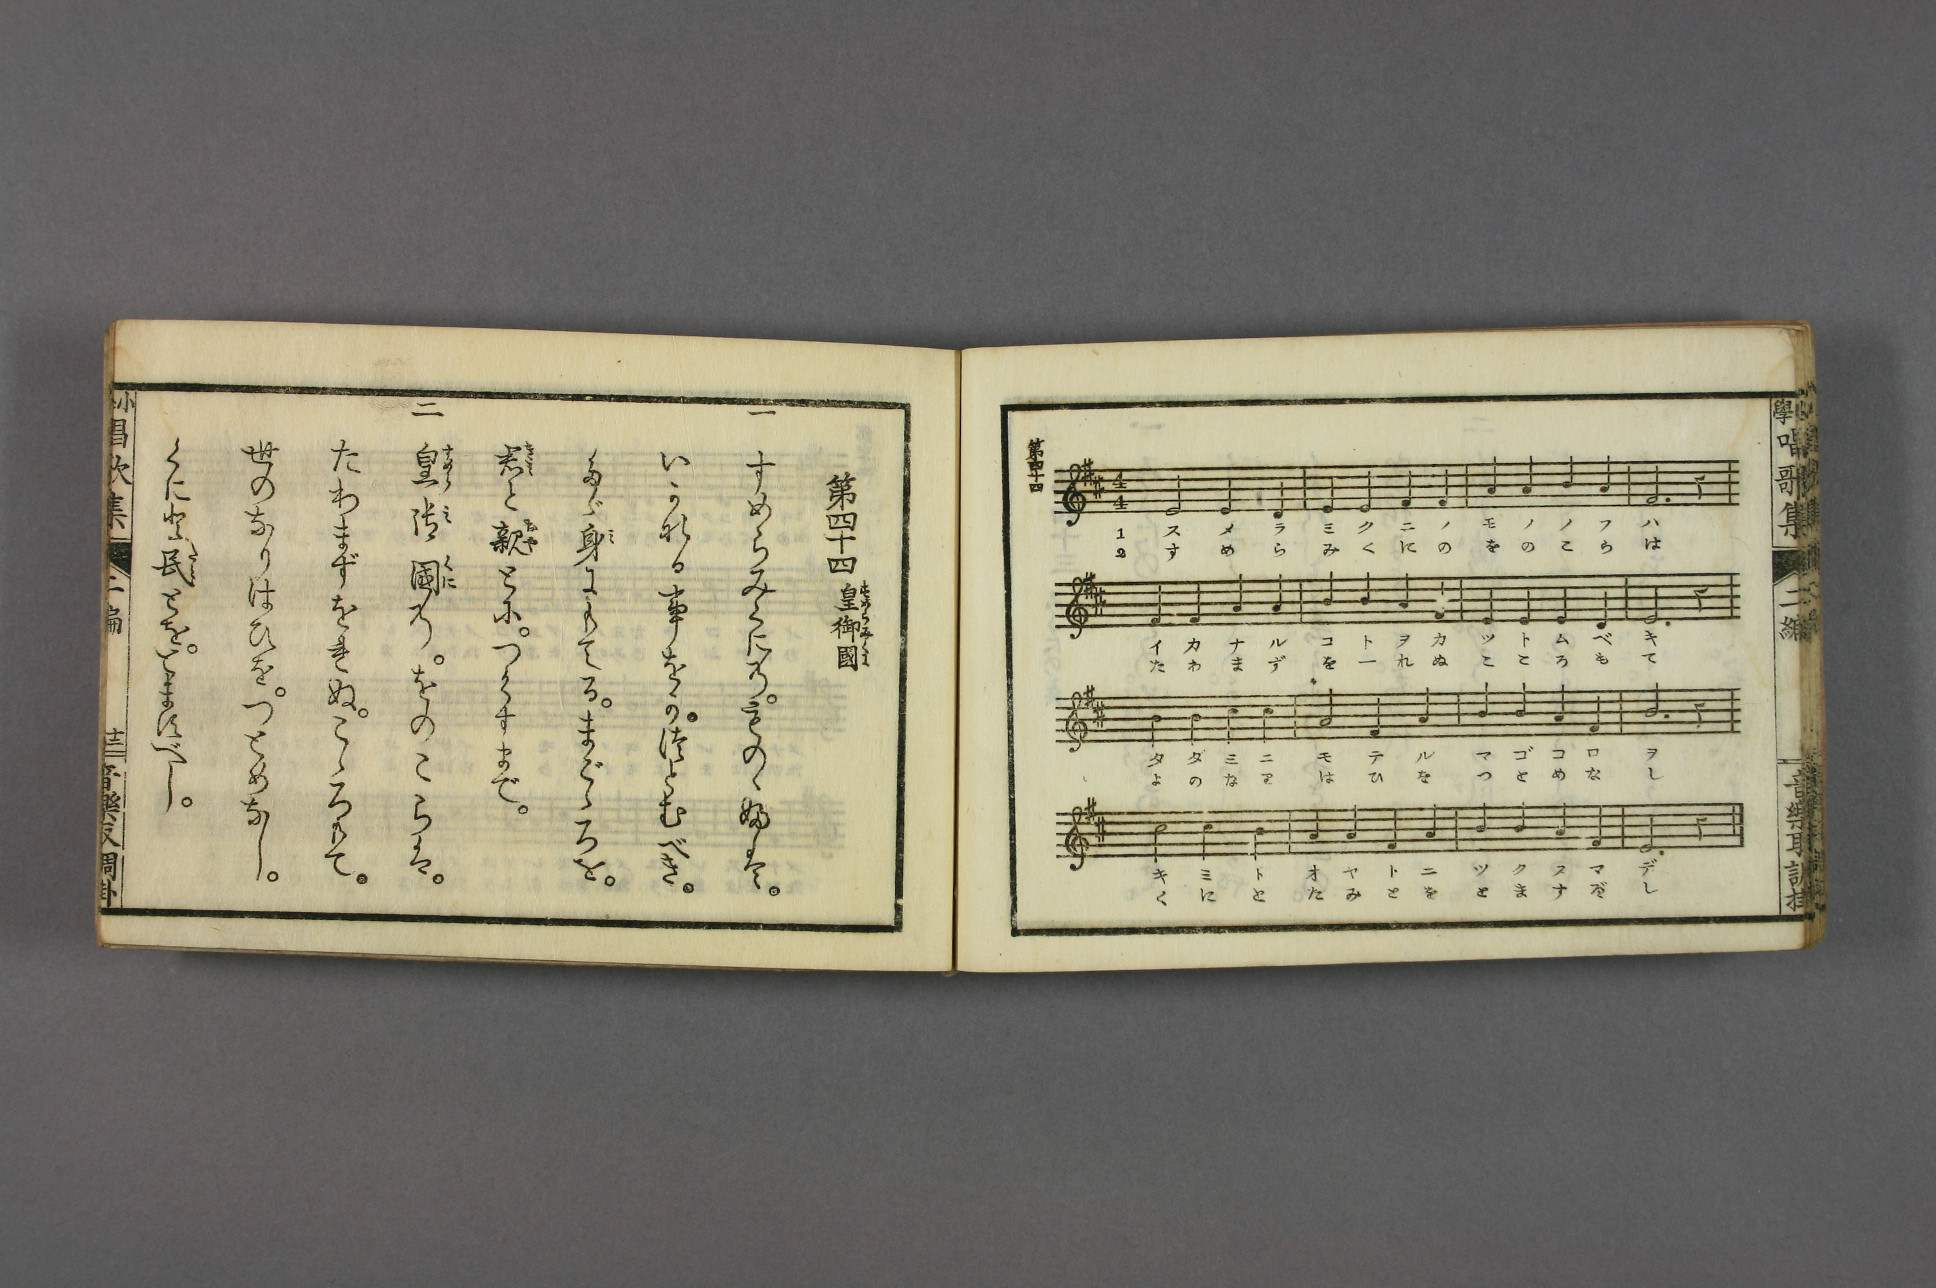 學唱歌集 二編 音樂取調掛
第四十四
4
4
1 スメラミクニノモノノフハ
2 すめらみくにのをのこらは
イカナルコトヲカツトムベキ
たわまずを一れぬこころもて
タダミニモテルマゴコロヲ
よのなりはひをつとめなし
キミトオヤトニツクスマデ
くにとたみとをとますべし
第四十四 皇御國
すめらみくに
一 すめらみくにの。ものゝふは。
いかなる事をか。つとむべき。
たゞ身にもてる。まごゝろを。
君と親とに。つくすまで。
二 皇御國の。をのこらは。
たわまずをれぬ。こゝろもて。
世のなりはひを。つとめなし。
くにと民とを。とますべし。
小學唱歌集 二編 十三 音樂取調掛